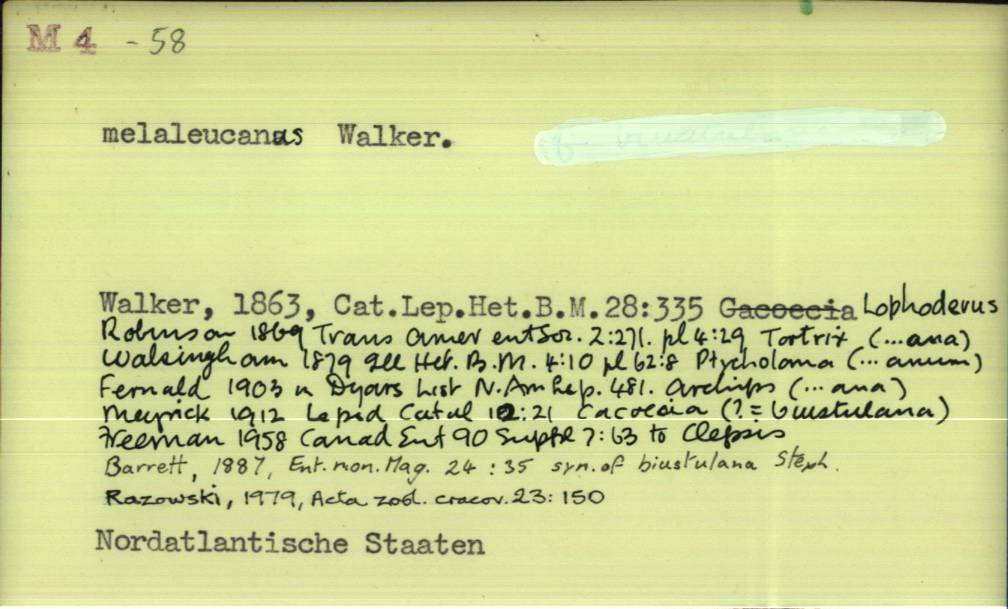 M 4 - 58
melaleucanus Walker.
Walker, 1863, Cat.Lep.Het.B.M.28:335 Cacoecia Lophoderus
Robinson 1869 Trans Amer ent Soc. 2:271. pl 4:29 Tortrix (...ana)
Walsingham 1879 Ill Het. B.M. 4:10 pl 62:8 Ptycholoma (...anum)
Fernald 1903 in Dyars List N.Am Lep. 481. Archips (...ana)
Meyrick 1912 Lepid Catal 10:21 Cacoecia (? = biustulana)
Freeman 1958 Canad Ent 90 Suppl 7:63 to Clepsis
Barrett, 1887, Ent. mon. Mag. 24 : 35 syn. of biustulana Steph.
Razowski, 1979, Acta zool. cracov. 23: 150
Nordatlantische Staaten